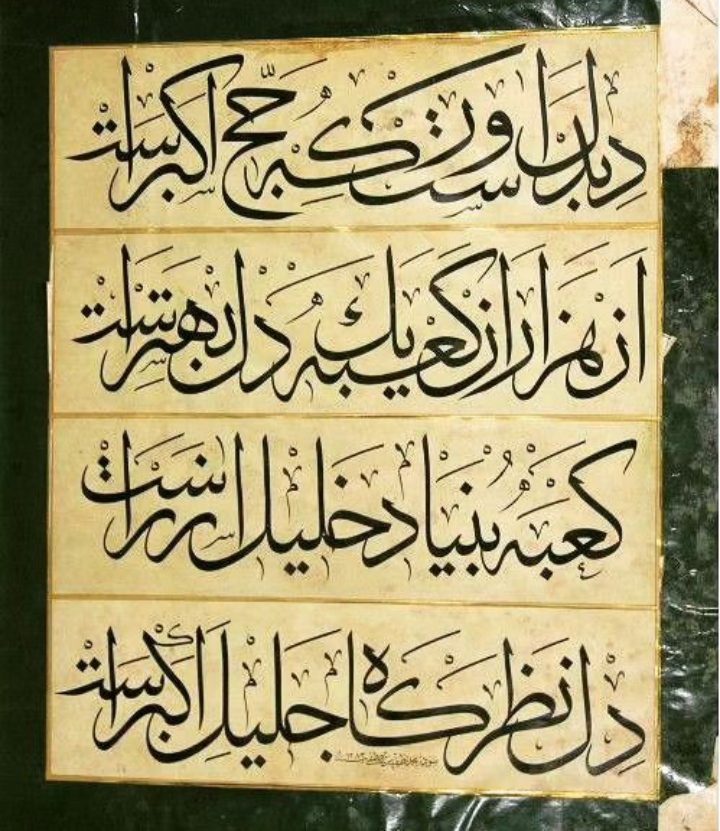 دل بدست اور که حج اکبر است
از هزاران کعبه یک دل بهتر است
کعبه بنیاد خلیل ازر است
دل نظرکاه جلیل اکبر است